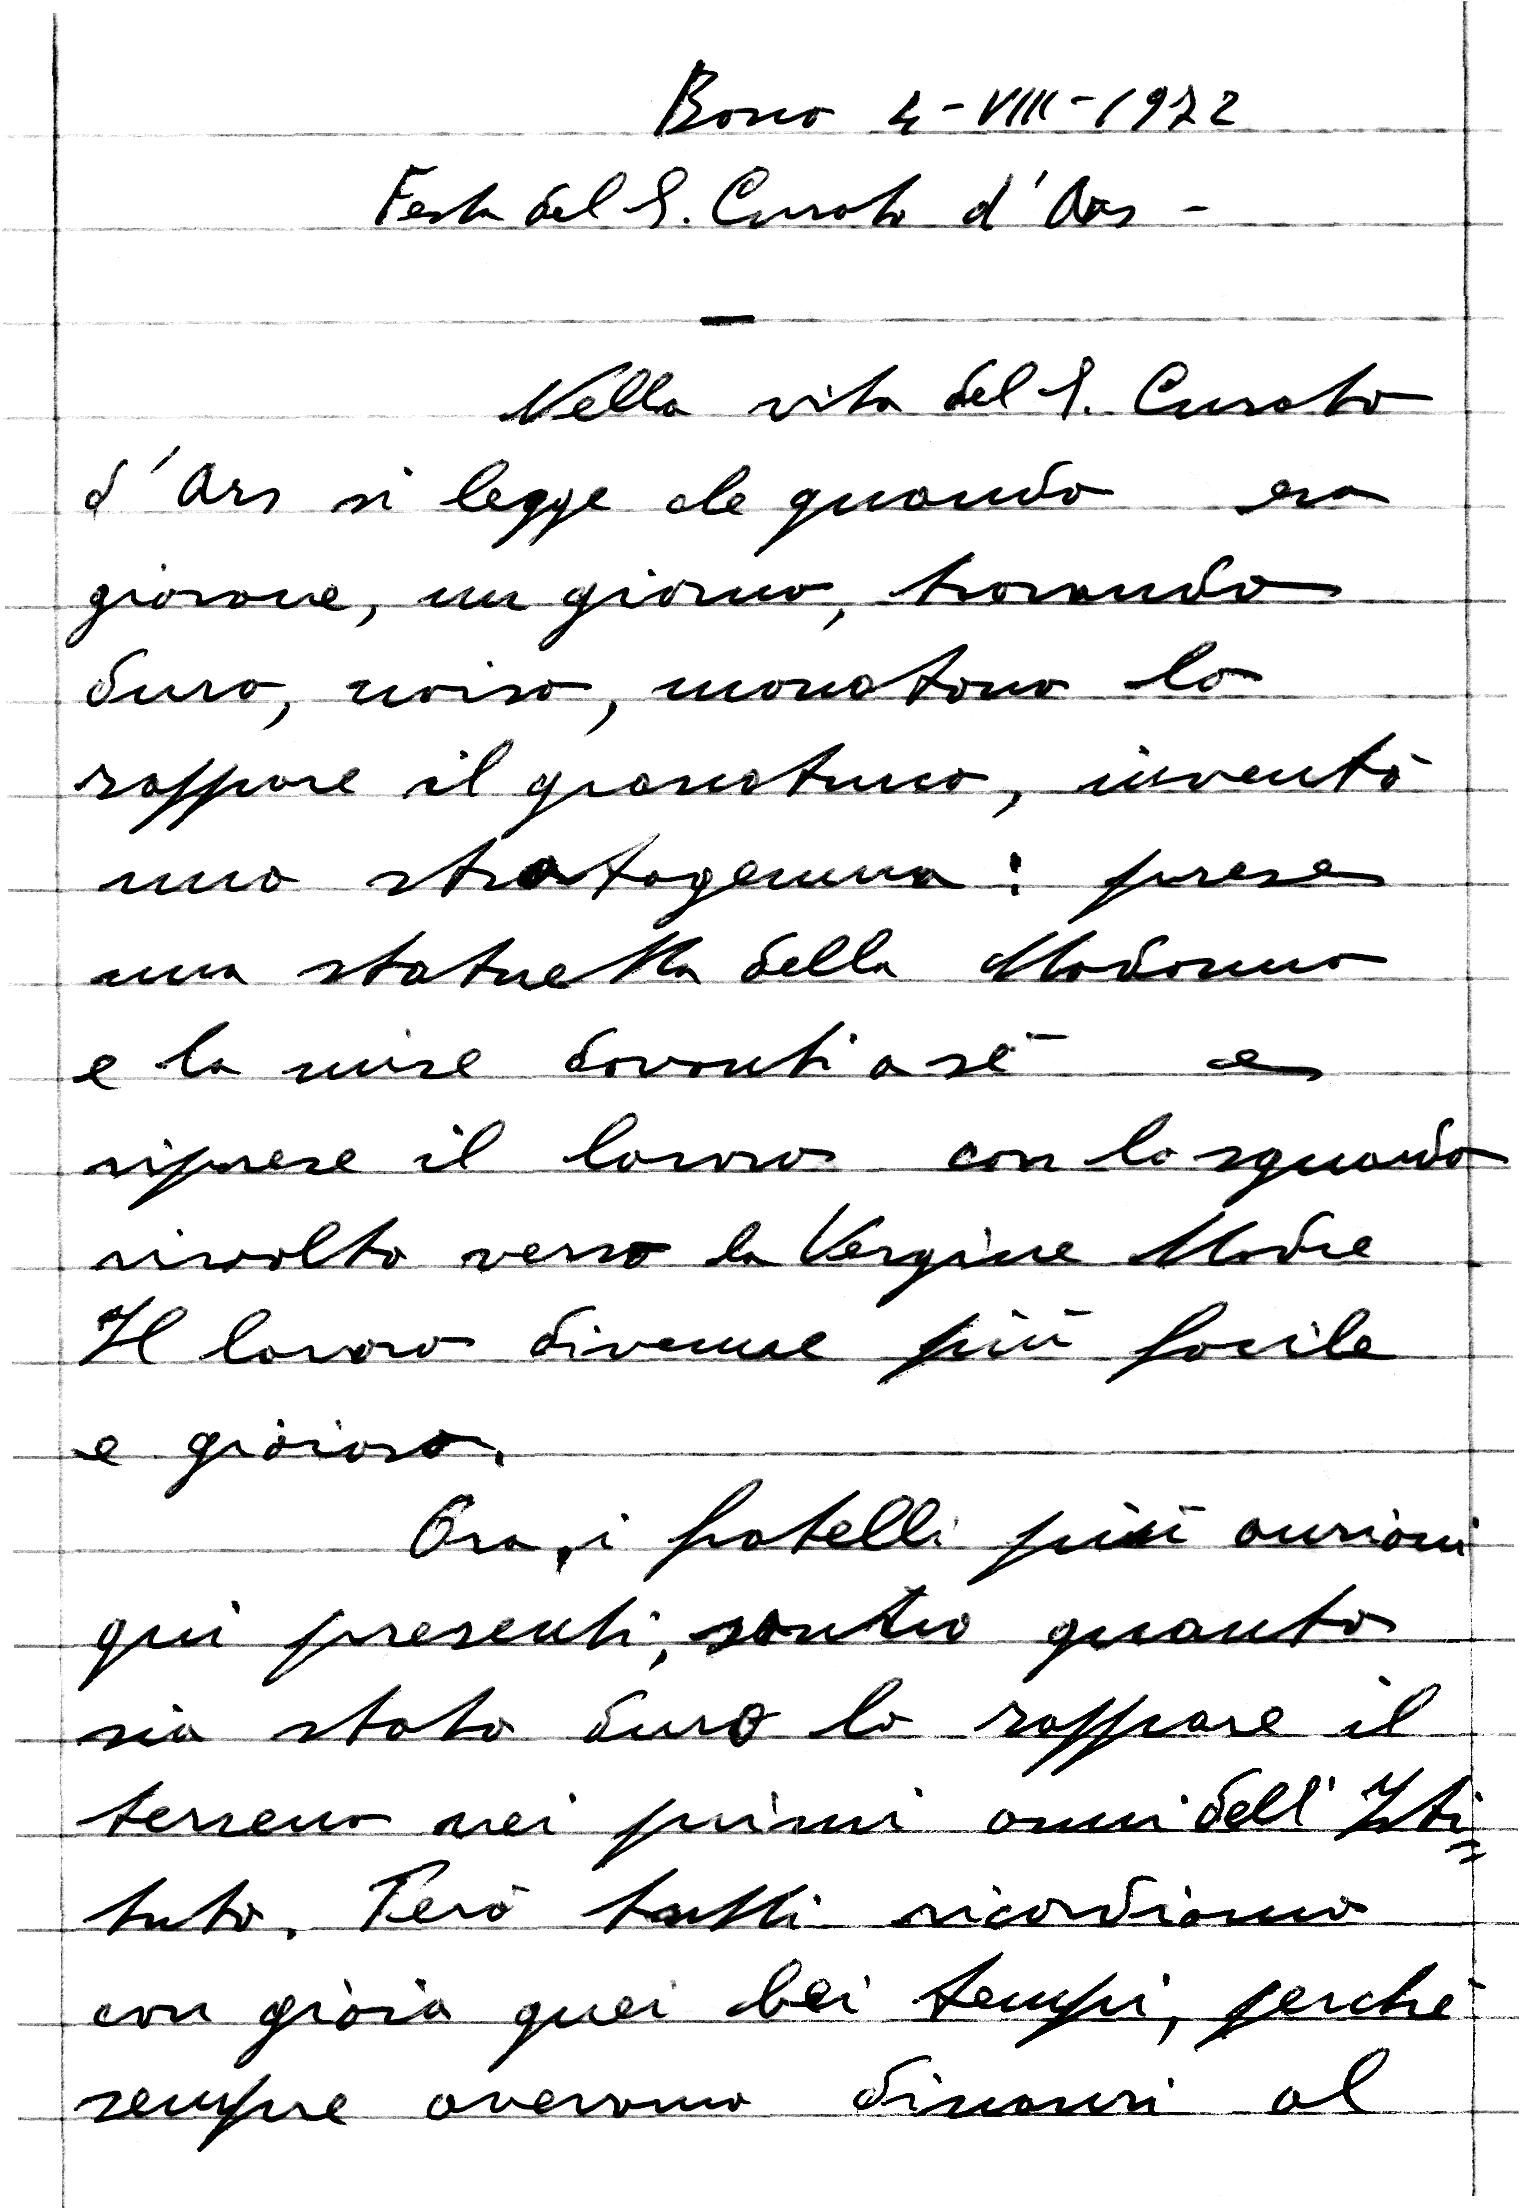 Bosco 4-VIII-1972
Festa del S. Curato d'Ars -
Nella vita del S. Curato
d'Ars si legge che quando era
giovane, un giorno, trovando
duro, noioso, monotono lo
zappare il granoturco, inventò
uno stratagemma: prese
una statuetta della Madonna
e la mise davanti a sé e
riprese il lavoro con lo sguardo
rivolto verso la Vergine Madre
Il lavoro divenne più facile
e gioioso.
Ora, i fratelli più anziani
qui presenti, sanno quanto
sia stato duro lo zappare il
terreno nei primi anni dell'Isti=
tuto. Però tutti ricordiamo
con gioia quei bei tempi, perché
sempre avevamo dinanzi al